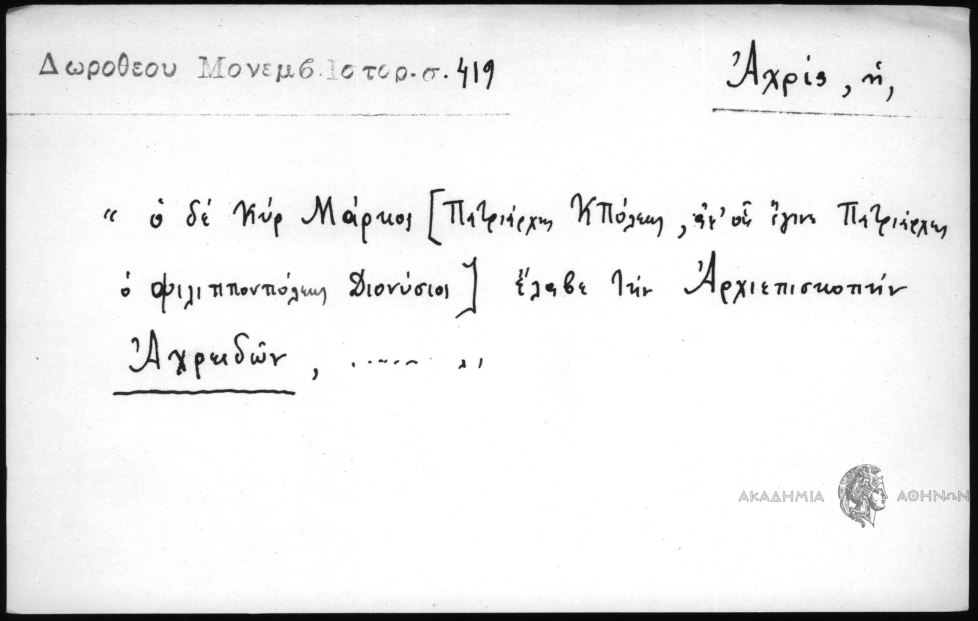 Δωροθεου Μονεμβ. Ιστορ. σ. 419
Ἀχρίς, ἡ,
“ ὁ δέ Κύρ Μάρκος [Πατριάρχης ΚΠόλεως, ἀφ' οὗ ἔγινε Πατριάρχης
ὁ Φιλιππουπόλεως Διονύσιος] ἔλαβε τήν Ἀρχιεπισκοπήν
Ἀχρειδῶν, ........ „
ΑΚΑΔΗΜΙΑ ΑΘΗΝΩΝ